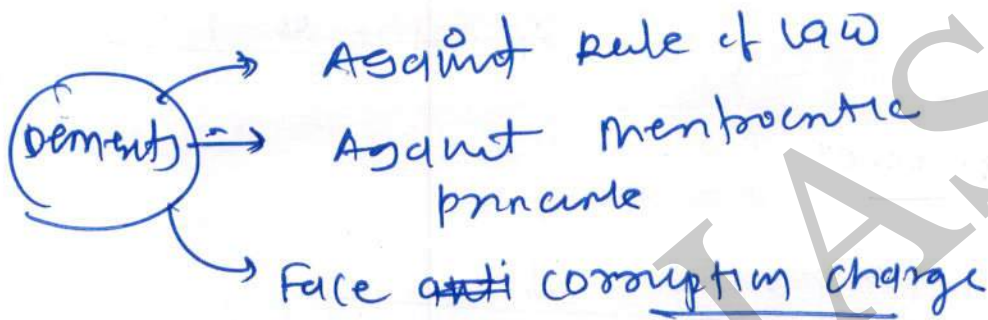 Demerits
Against Rule of law
Against meritocratic
principle
Face anti corruption charge
IAS